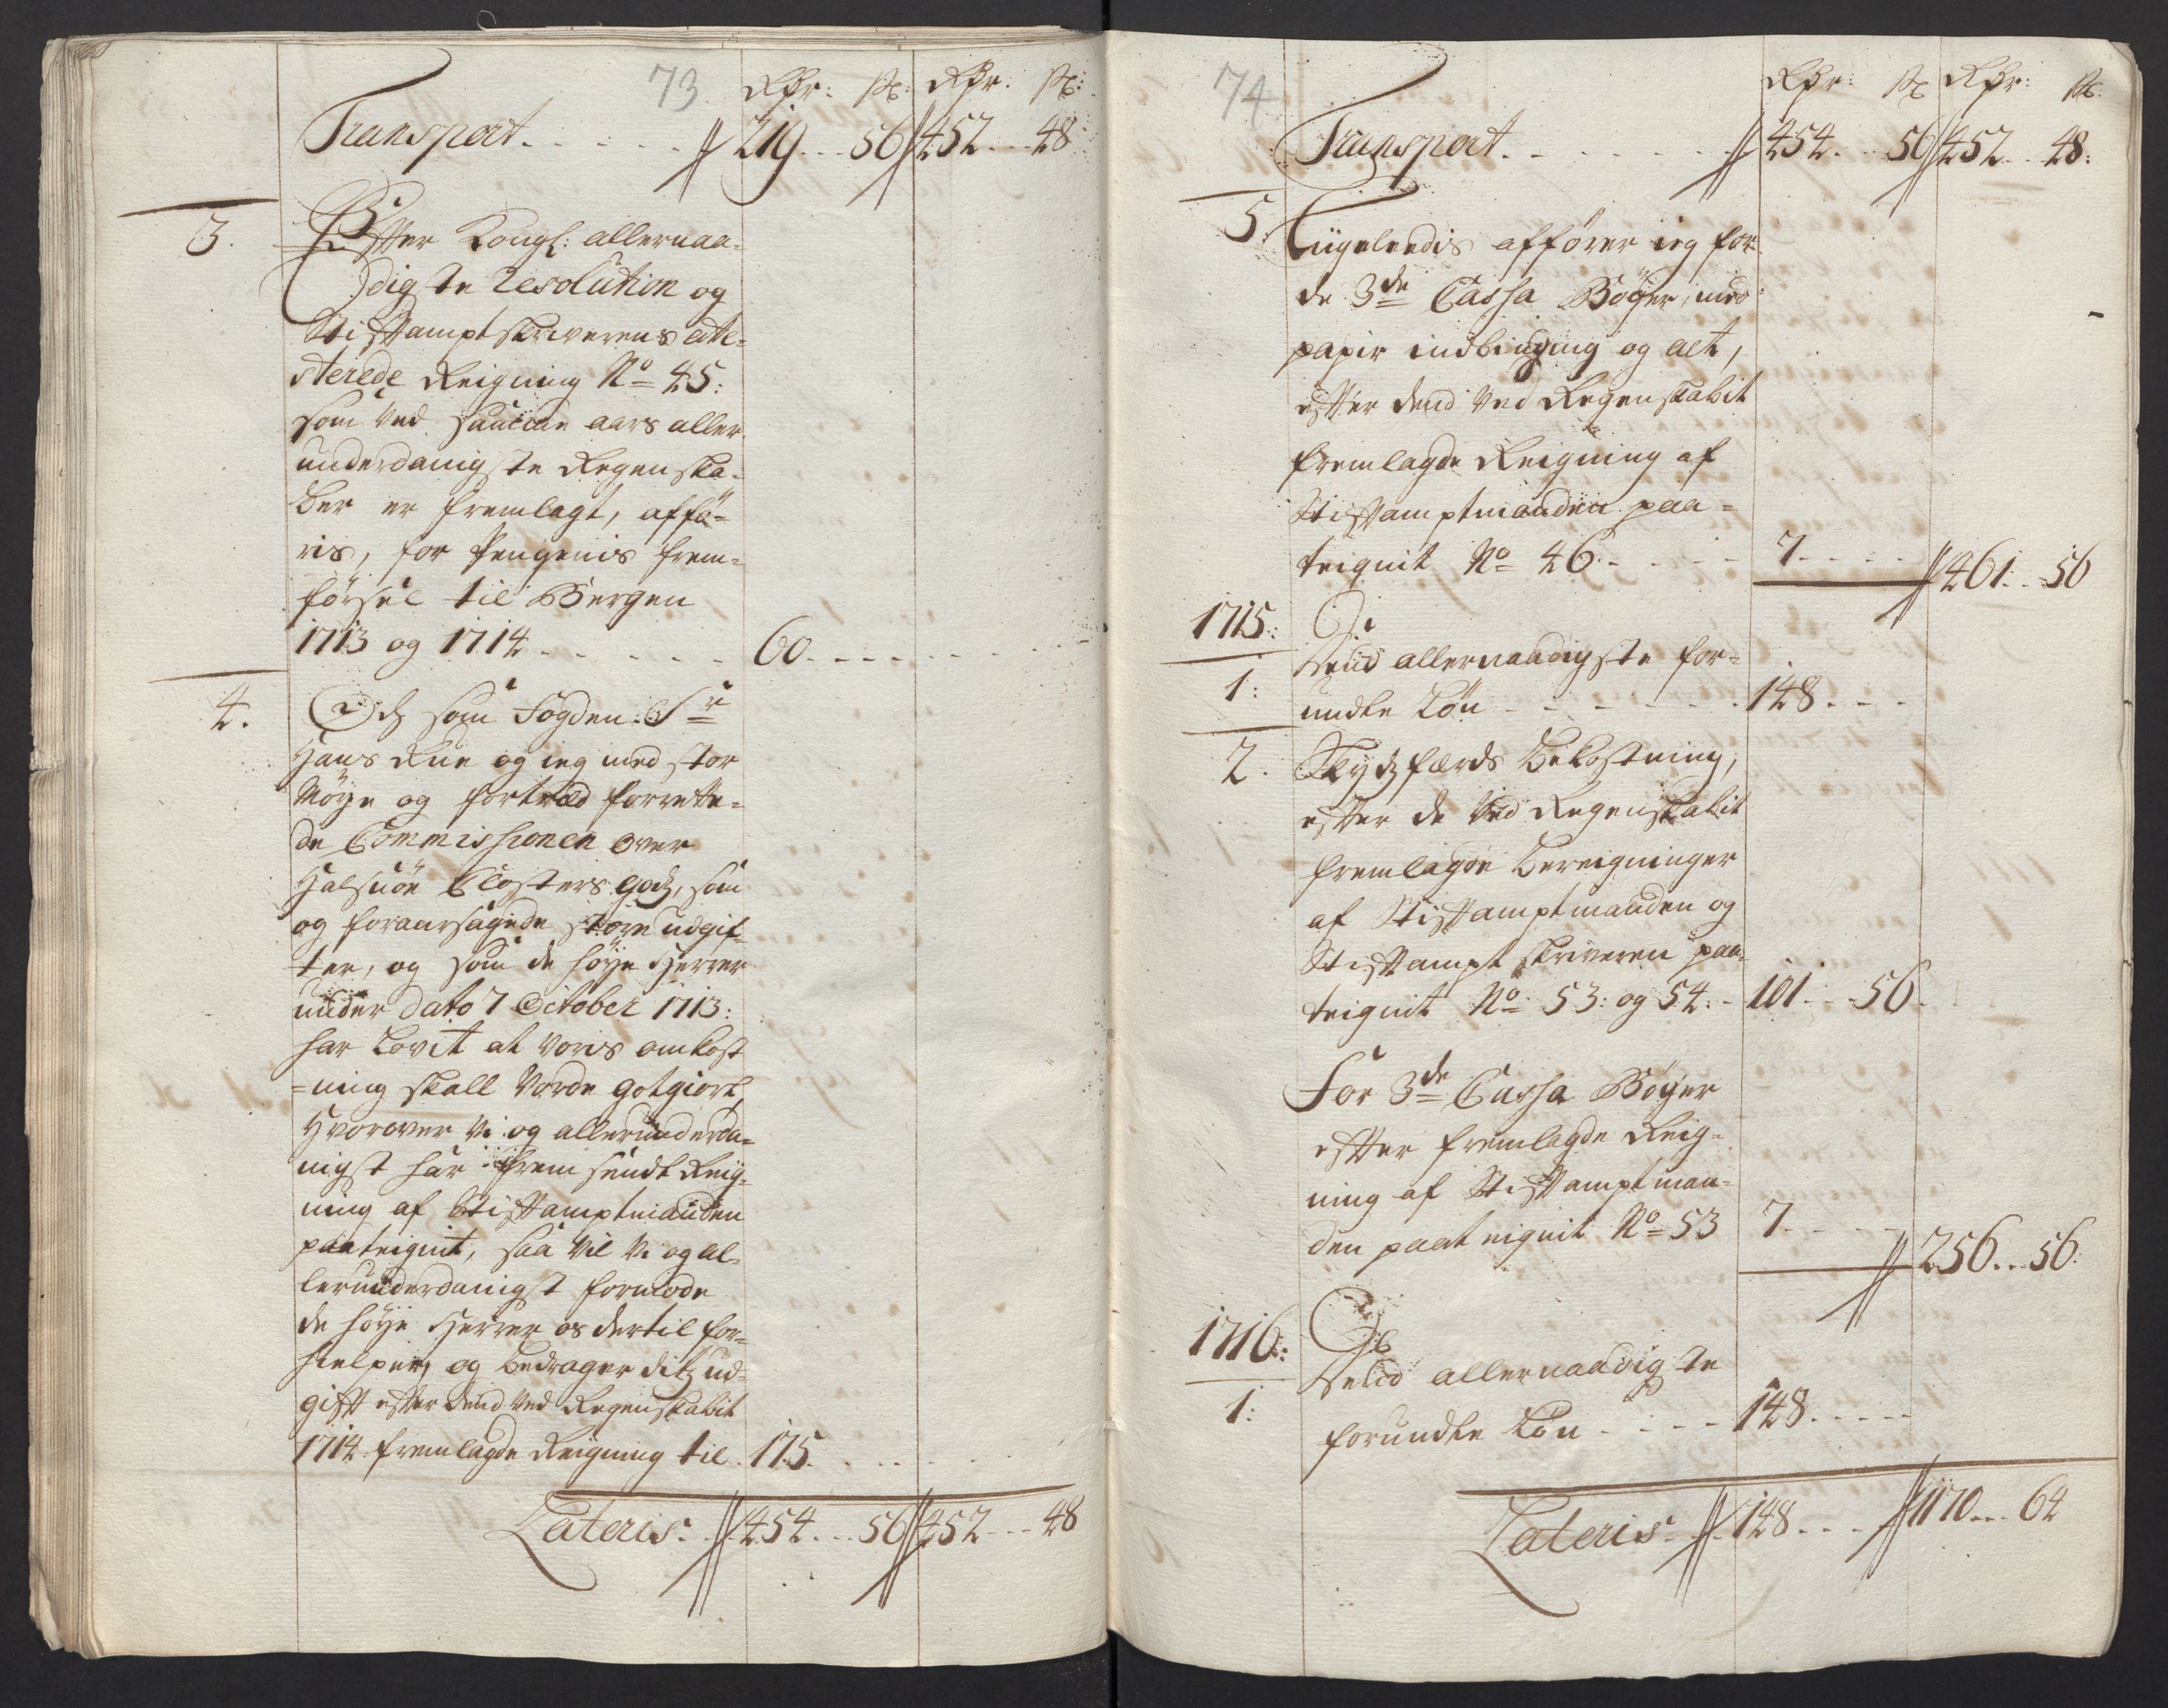 73. Rdr: sk: Rdr: sk:
Transport. - - - - - 219 - - 56 452 - - 48
3. Effter Kongl: allernaa-
digste Resolution og
Stifftamptskriverens atte-
sterede Reigning No 45:
som ved samme aars aller
underdanigste Regenska-
ber er fremlagt, affö-
ris, for Pengenis frem-
försel til Bergen
1713 og 1714 - - - - - - 60. - - - -
4. Og som Fogden Sr
Hans Rue og ieg med stor
Möye og fortræd forrette-
de Commissionen over
Halsnöe Closters godz, som
og foraarsagede store udgif-
ter, og som de höye Herrer
under dato 7 October 1713:
har Lovit at voris omkost
-ning skall vorde gotgiort,
Hvorover vi og allerunderda-
nigst har frem sendt Reig-
ning af Stifftamptmanden
paateignit, saa vil vi og al-
lerunderdanigst formode
de höye Herrer os dertil for-
hielper, og bedrager ditz ud-
gifft effter dend ved Regenskabit
1714 fremlagde Reigning til. 175. - - -
Lateris. 454. - - 56 452 - - - 48
74 Rdr: sk Rdr: sk.
Transport. - - - - - - 454. - - 56 452. - 48:
5. Liigeleedis afförer ieg for
de 3de Cassa Böger, med
papir indbinding og alt,
effter dend ved Regenskabit
fremlagde Reigning af
Stifftamptmanden paa-
teignit No 46. - - - - 7. - - - 461. - 56
1715:
1: Dend allernaadigste for-
undte Lön - - - - - - 148. - - -
2. Skydzfærds Bekostning,
effter de ved Regenskabit
fremlagde Bereigninger
af Stifftamptmanden og
Stifftamptskriveren paa-
teignit No 53: og 54: - 101 - - 56.
For 3de Cassa Böger
effter fremlagde Reig-
ning af Stifftamptman-
den paateignit No 53 7. - - - 256. - - 56:
1716:
1: Dend allernaadigste
forundte Lön - - - - 148. - - - -
Lateris. 148. - - - 1170. - - 64